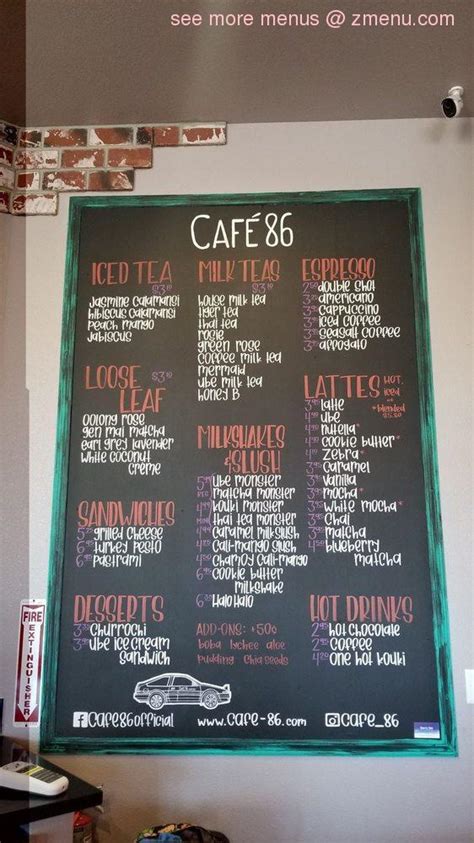 see more menus @ zmenu.com
CAFÉ 86
ICED TEA
Jasmine Calamansi
hibiscus Calamansi
Peach Mango
Jabiscus
LOOSE
LEAF
oolong rose
gen mai matcha
earl grey lavender
white coconut
creme
SANDWICHES
grilled cheese
turkey pesto
pastrami
DESSERTS
Churrochi
ube ice cream
sandwich
MILK TEAS
house milk tea
tiger tea
thai tea
rosie
green rose
coffee milk tea
mermaid
ube milk tea
honey B
MILKSHAKES
& SLUSH
ube monster
matcha monster
kouki monster
thai tea monster
caramel milkslush
cali-mango slush
chamoy cali-mango
cookie butter
milkshake
Halo Halo
ADD-ONS: +50¢
boba lychee aloe
pudding chia seeds
ESPRESSO
double shot
americano
cappuccino
iced coffee
seasalt coffee
affogato
LATTES HOT,
iced
*blended
latte
ube
nutella*
cookie butter*
zebra*
caramel
vanilla
mocha*
white mocha*
chai
matcha
blueberry
matcha
HOT DRINKS
hot chocolate
coffee
one hot kouki
Cafe86official
www.cafe-86.com
@cafe_86
FIRE
EXTINGUISHER